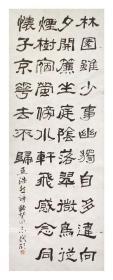 林園雖少事幽獨自多違向
夕開簾坐庭陰落微鳥從
煙樹宿螢傍水軒飛感念幽
子京華去不歸
孟浩然詩